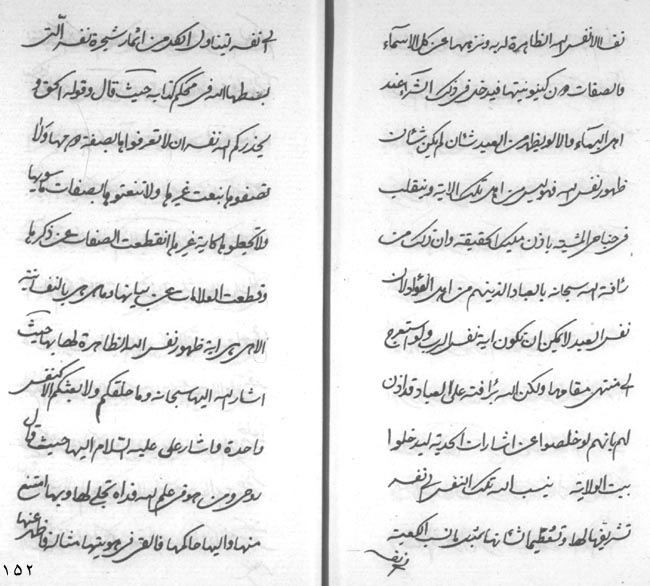 نفسا الا نفس الله الظاهرة له به و نزهها عن كل الاسماء
و الصفات و من كينونيتها فيدخل في ذلك الشراء عند
اهل البهاء و الا لو يظهر من العبد شئان لم يكن شئان
ظهور نفس الله فهو ليس من اهل تلك الاية و ينقلب
في جناحي المشية باذن مليك الحقيقة و ان ذلك من
رأفة الله سبحانه بالعباد الذينهم من اهل الفؤاد لان
نفس العبد لا يمكن ان تكون اية نفس الرب و لو استعرج
الى منتهى مقامها ولكن الله برأفته على العباد قد اذن
لهم بانهم لو خلصوا عن اشارات الحدية ليدخلوا
بيت الولاية ينسب الله تلك النفس الى نفسه
تشريفا لها و تعظيما لشانها بمثل ما نسب الكعبة
الى نفسه ليتناول الكل من اثمار شجرة نفسه التي
بعظها الله في محكم كتابه حيث قال و قوله الحق و
يحذركم الله نفسه ان لا تعرفوها بالصفة و جهها و لا
تصفوها بنعت غيرها و لا تنعتوها بالصفات ما سويها
و لا تجعلوها كاية غيرها انقطعت الصفات عن ذكرها
و قطعت العلامات عن بيانها و ما هي بالنفسانية
الا هي هي اية ظهور نفس الله الظاهرة لها بها حيث
اشار الله اليها سبحانه و ما خلقكم و لا بعثكم الا كنفس
واحدة و اشار على عليه السلام اليها حيث قال
روحي و من هو في علم الله فداه تجلى لها بها و بها امتنع
منها و اليها حاكمها فالقى في هويتها مثاله فاظهر عنها
١٥٢